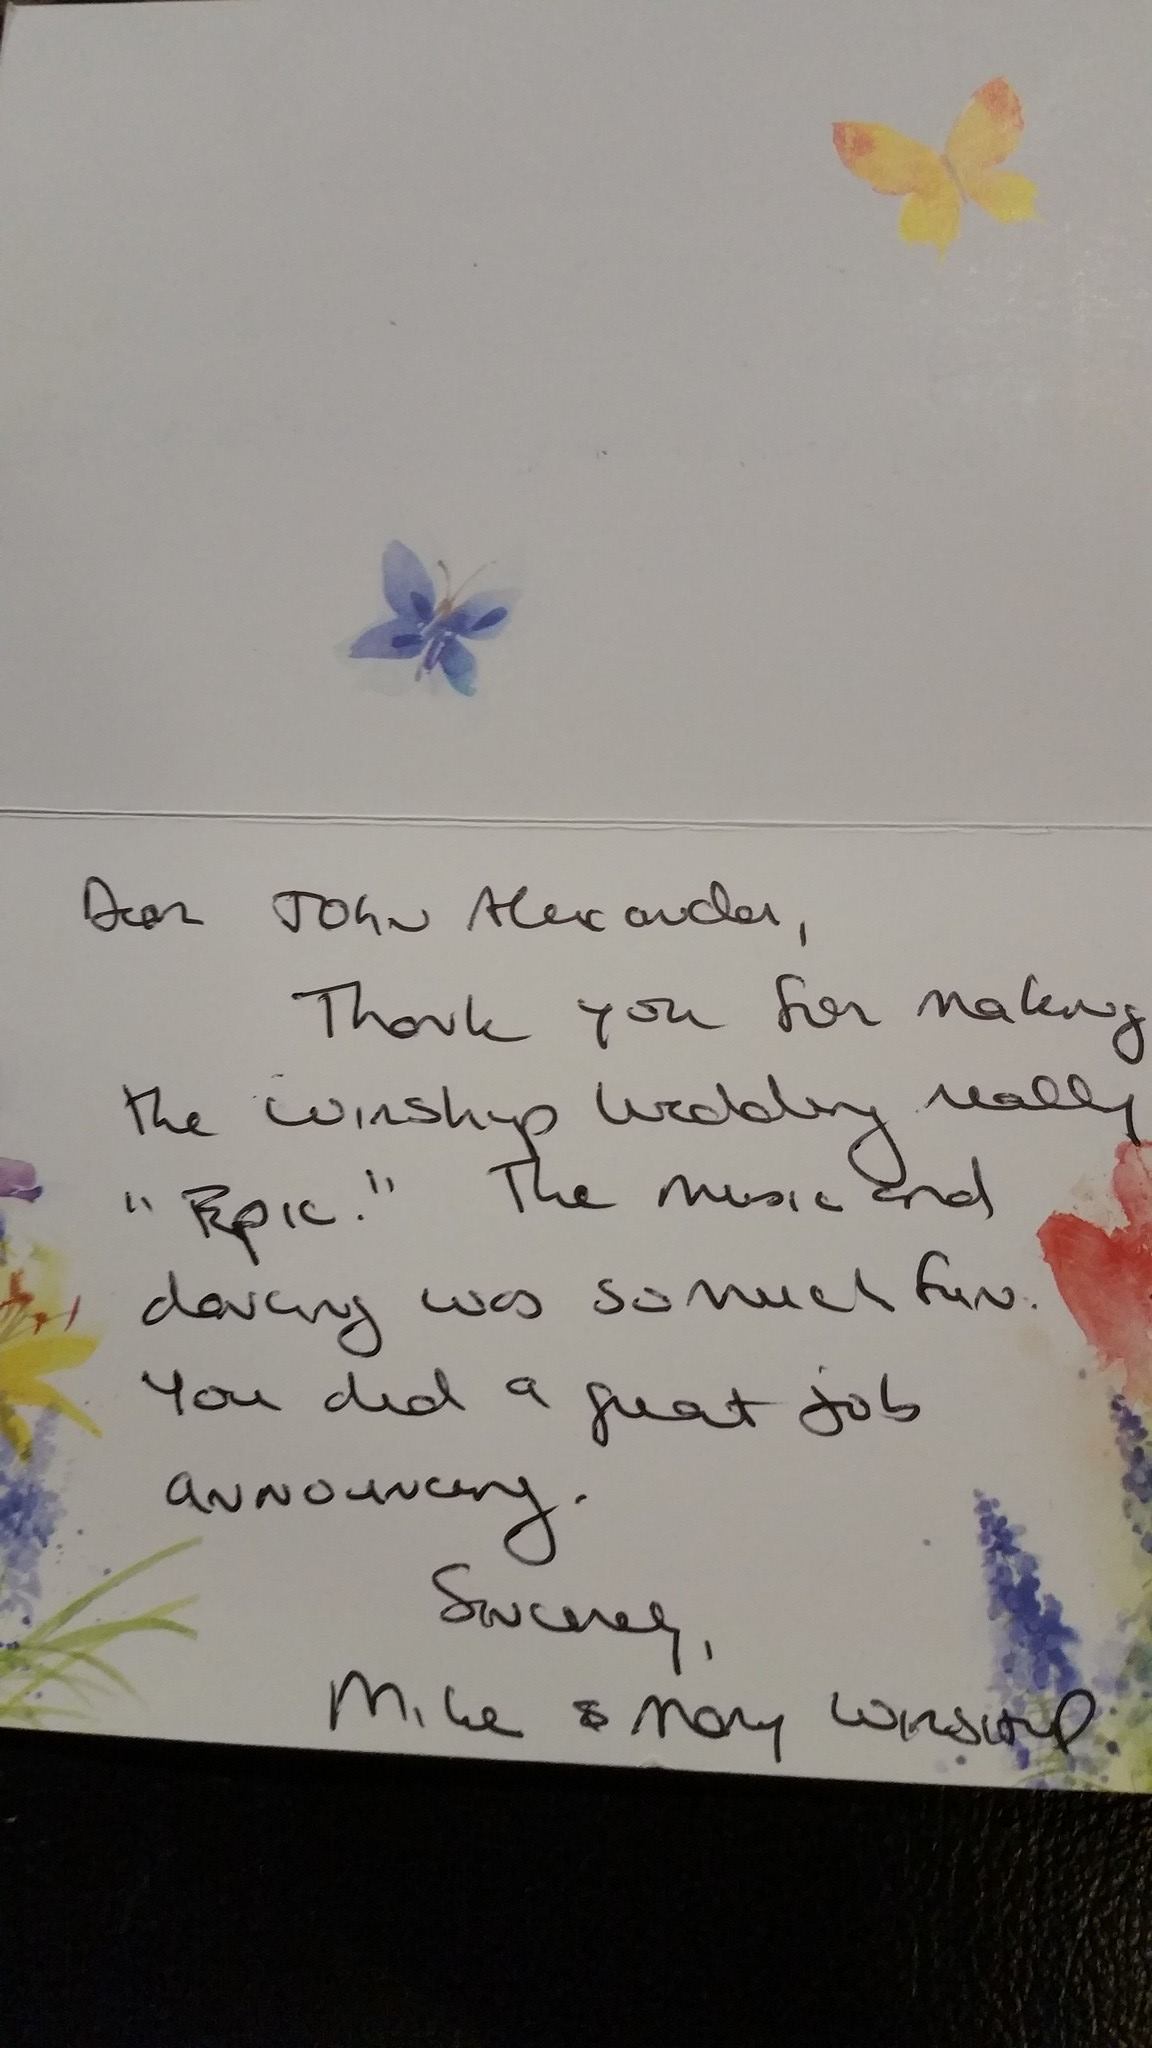 Dear John Alexander,
Thank you for making
the Winship Wedding really
"Epic." The music and
dancing was so much fun.
You did a great job
announcing.
Sincerely,
Mike & Mary Winship